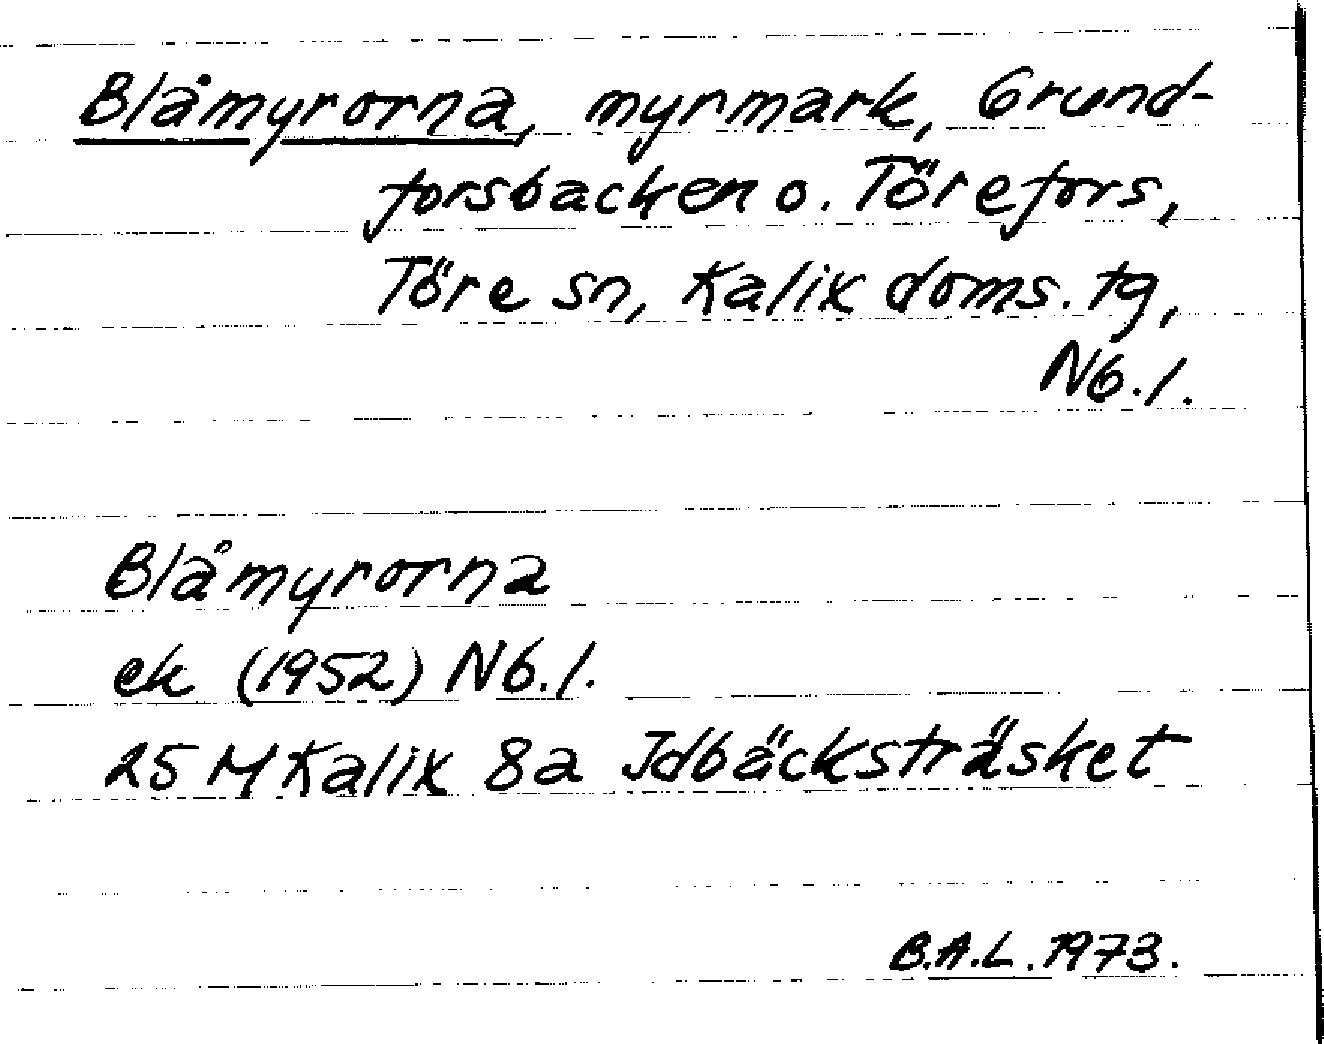 Blåmyrorna, myrmark, Grund-
forsbacken o. Törefors,
Töre sn, Kalix doms. tg,
Nb. l.
Blåmyrorna
ek (1952) Nb. l.
25 M Kalix 8a Idbäcksträsket
B.A.L. 1973.